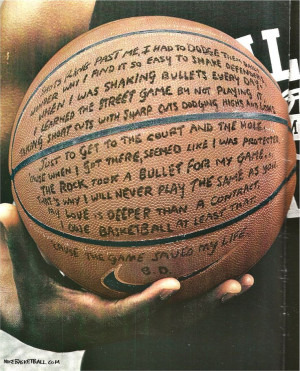 SHOTS FLYING PAST ME, I HAD TO DODGE THEM BULLETS
WONDER WHY I FIND IT SO EASY TO SHAKE DEFENDERS
WHEN I WAS SHAKING BULLETS EVERY DAY
I LEARNED THE STREET GAME BY NOT PLAYING IT
TAKING SHORT CUTS WITH SHARP CUTS DODGING HIGHS AND LOWS
JUST TO GET TO THE COURT AND THE HOLE...
'CUSE WHEN I GOT THERE, SEEMED LIKE I WAS PROTECTED
THE ROCK TOOK A BULLET FOR MY GAME...
THAT'S WHY I WILL NEVER PLAY THE SAME AS YOU
MY LOVE IS DEEPER THAN A CONTRACT,
I OWE BASKETBALL AT LEAST THAT.
'CAUSE THE GAME SAVED MY LIFE.
B.D.
NIKEBASKETBALL.COM